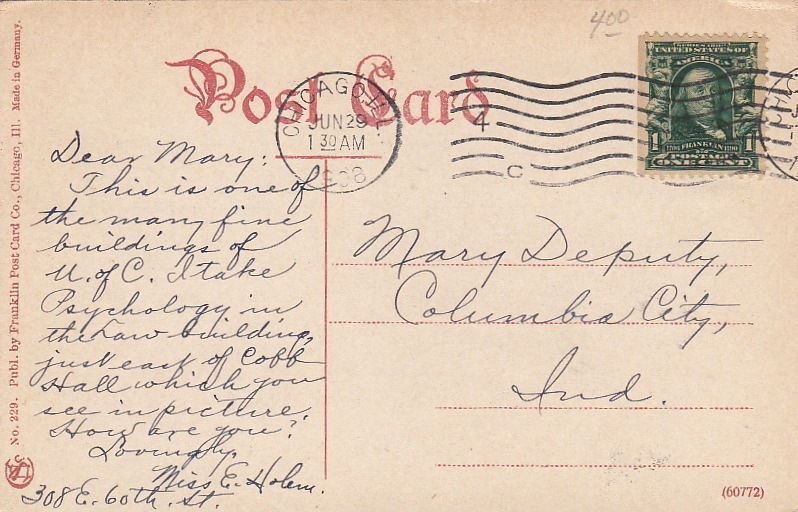 400
Post Card
CHICAGO, ILL.
JUN 29
1 30 AM
1908
4
C
SERIES 1902
UNITED STATES OF
AMERICA
1706 FRANKLIN 1790
POSTAGE
1 ONE CENT 1
Dear Mary:
This is one of
the many fine
buildings of
U. of C. I take
Psychology in
the Law building,
just east of Cobb
Hall which you
see in picture.
How are you?
Lovingly,
Miss E. Holem.
308 E. 60th. St.
Mary Deputy,
Columbia City,
Ind.
(60772)
No. 229. Publ. by Franklin Post Card Co., Chicago, Ill. Made in Germany.